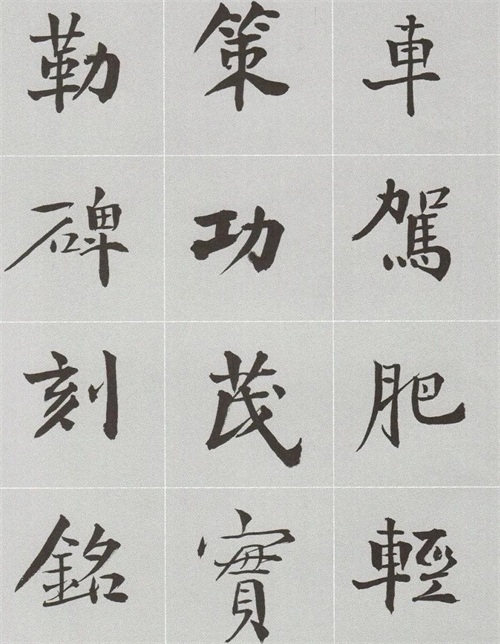 車駕肥輕
策功茂實
勒碑刻銘